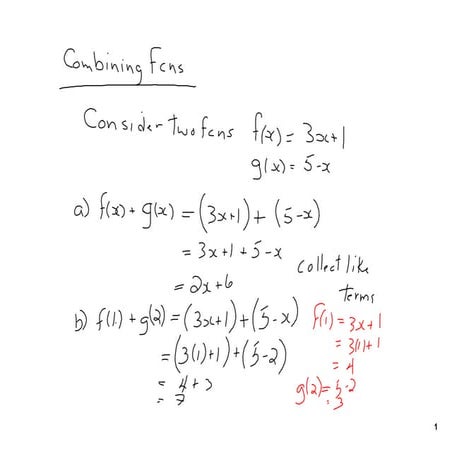 Combining Fcns
Consider two fcns f(x) = 3x+1
g(x) = 5-x
a) f(x) + g(x) = (3x+1) + (5-x)
= 3x+1 + 5-x
= 2x+6
collect like
terms
b) f(1) + g(2) = (3x+1) + (5-x)
= (3(1)+1) + (5-2)
= 4+3
= 7
f(1) = 3x+1
= 3(1)+1
= 4
g(2) = 5-2
= 3
1